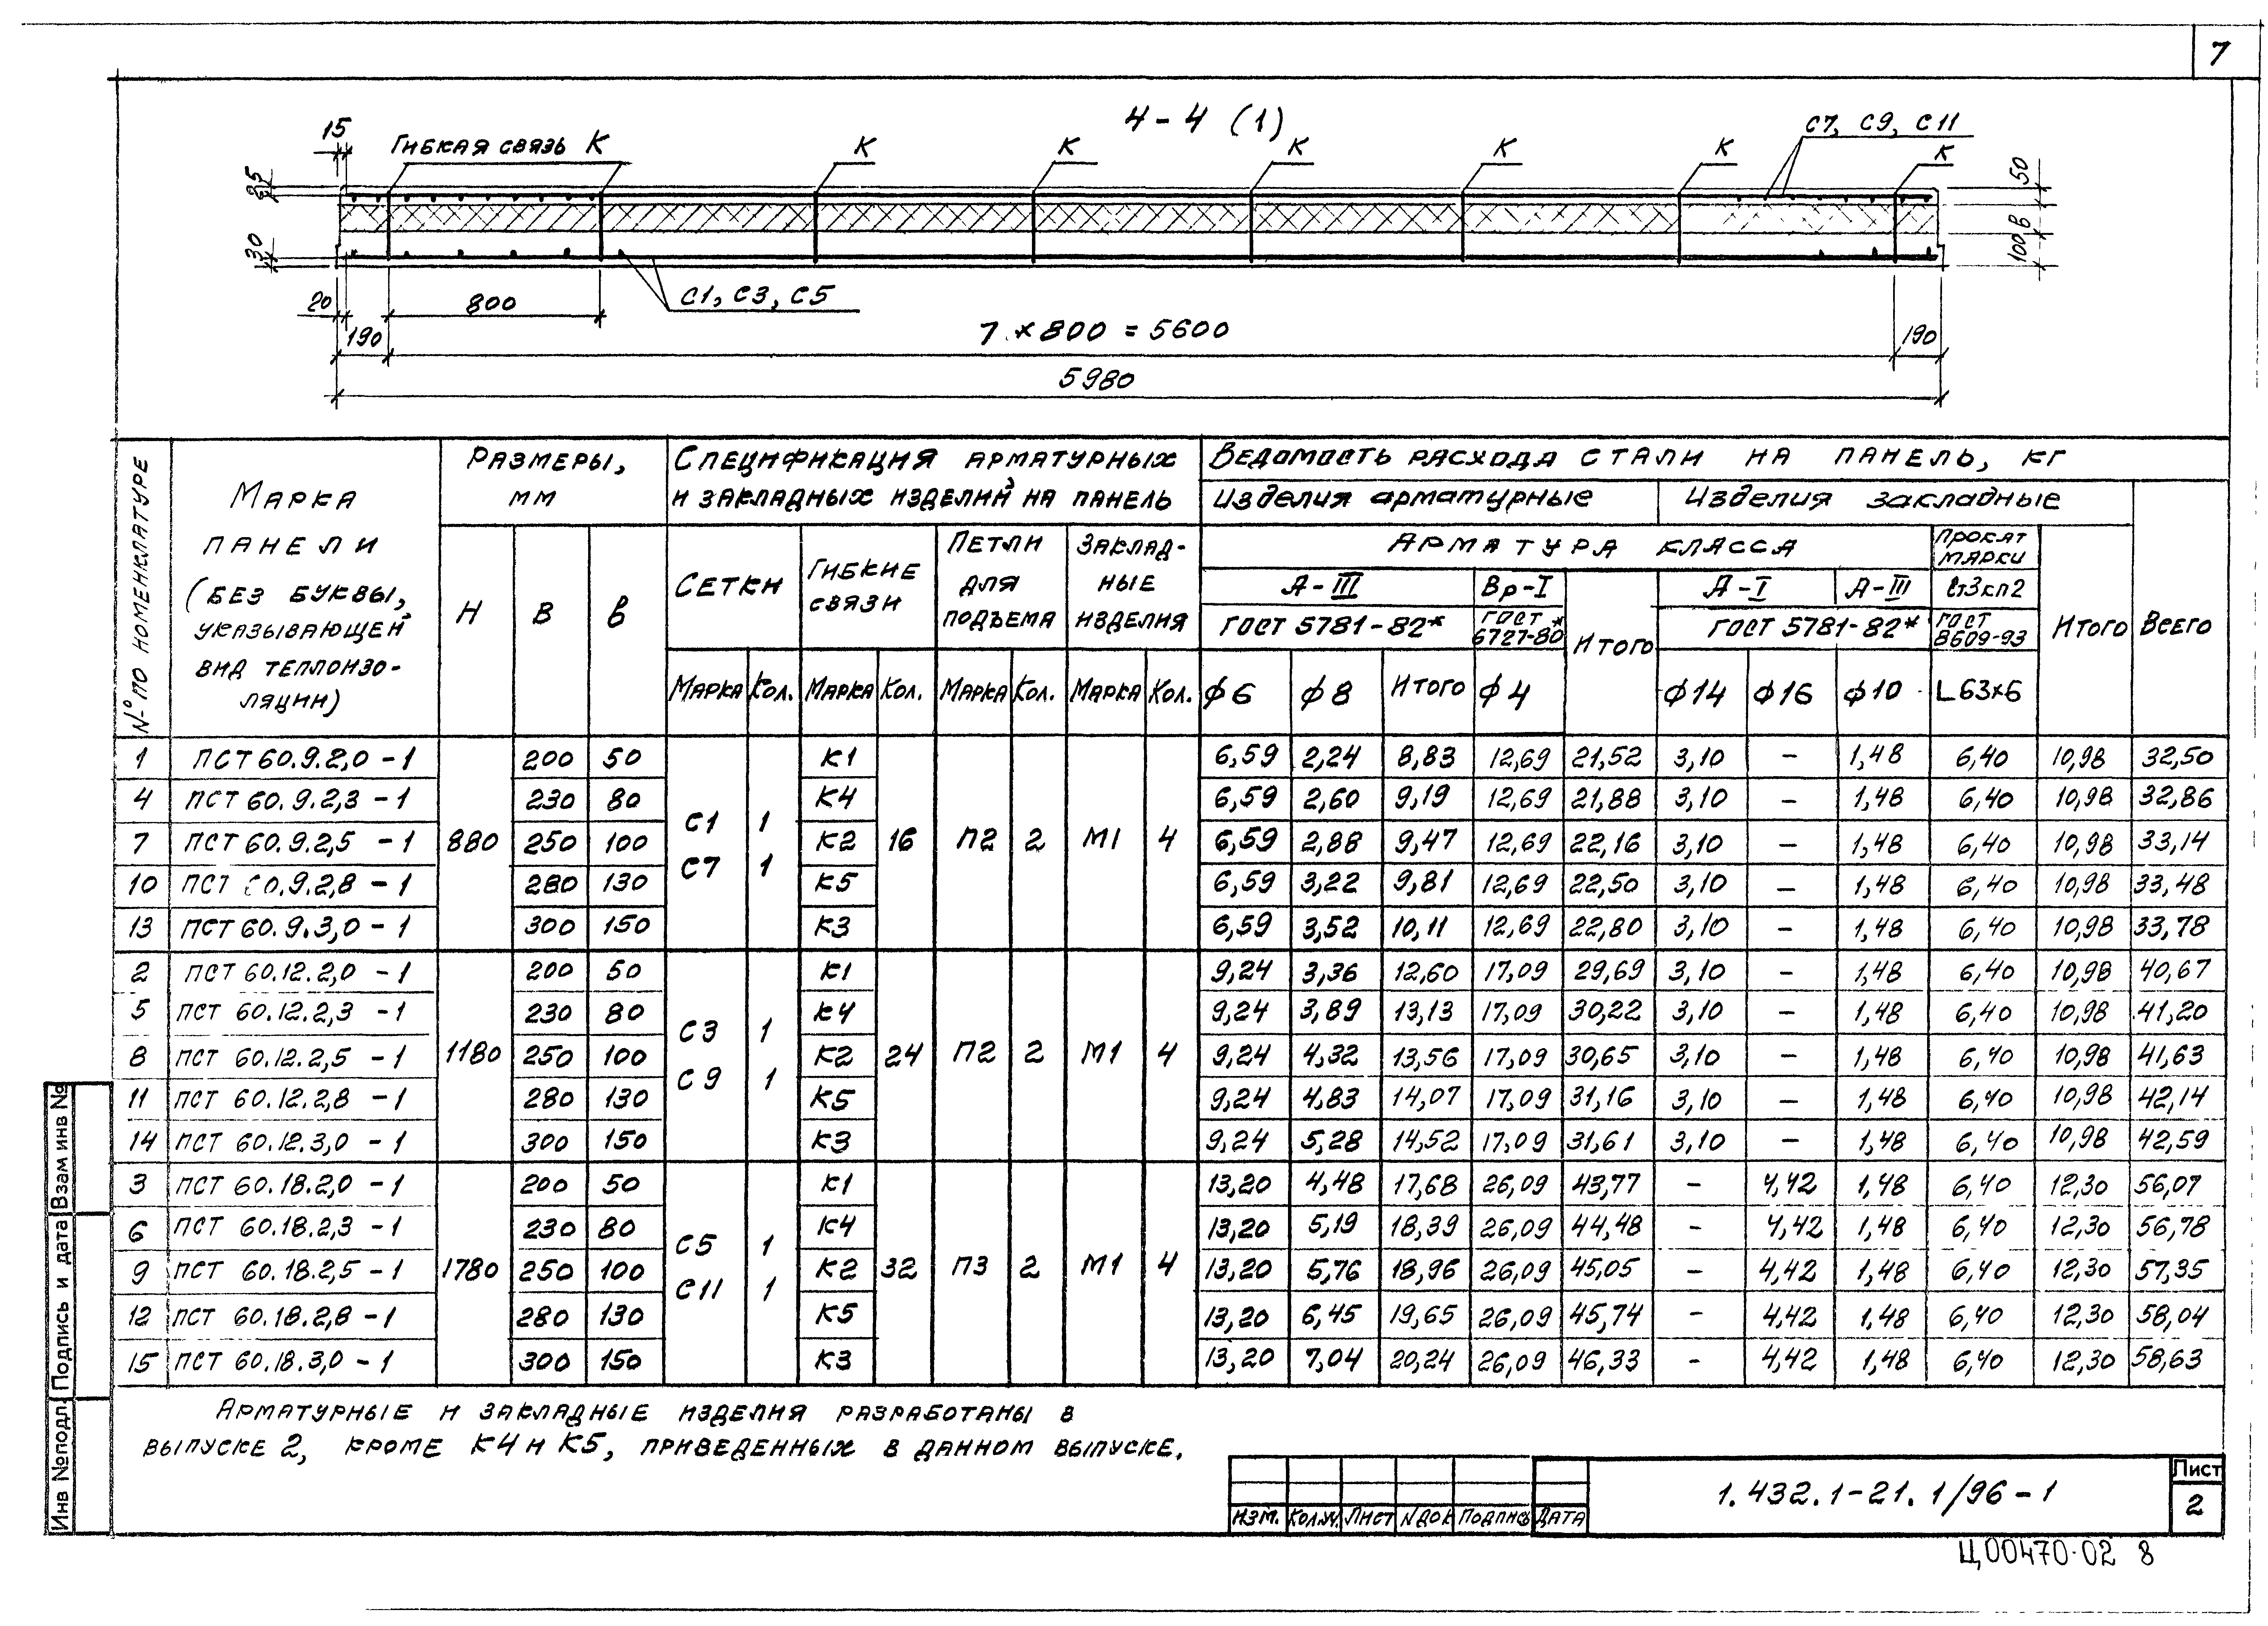 7
4-4 (1)
15
Гибкая связь К
К
К
К
К
К
К
С7, С9, С11
25
30
50
В
100
20
190
800
С1, С3, С5
7 × 800 = 5600
190
5980
№ по номенклатуре
Марка панели (без буквы, указывающей вид теплоизоляции)
Размеры, мм
Спецификация арматурных и закладных изделий на панель
Ведомость расхода стали на панель, кг
Изделия арматурные
Изделия закладные
Н
В
в
Сетки
Гибкие связи
Петли для подъема
Закладные изделия
Арматура класса
Прокат марки
А-III
Вр-I
Итого
А-I
А-III
Вт3кп2
Итого
Всего
ГОСТ 5781-82*
ГОСТ 6727-80*
ГОСТ 5781-82*
ГОСТ 8609-93
Марка Кол. Марка Кол. Марка Кол. Марка Кол. ф6 ф8 Итого ф4 ф14 ф16 ф10 L63×6
1 ПСТ 60.9.2,0 -1 200 50 К1 6,59 2,24 8,83 12,69 21,52 3,10 – 1,48 6,40 10,98 32,50
4 ПСТ 60.9.2,3 -1 230 80 К4 6,59 2,60 9,19 12,69 21,88 3,10 – 1,48 6,40 10,98 32,86
7 ПСТ 60.9.2,5 -1 880 250 100 С1 1 С7 1 К2 16 П2 2 М1 4 6,59 2,88 9,47 12,69 22,16 3,10 – 1,48 6,40 10,98 33,14
10 ПСТ 60.9.2,8 -1 280 130 К5 6,59 3,22 9,81 12,69 22,50 3,10 – 1,48 6,40 10,98 33,48
13 ПСТ 60.9.3,0 -1 300 150 К3 6,59 3,52 10,11 12,69 22,80 3,10 – 1,48 6,40 10,98 33,78
2 ПСТ 60.12.2,0 -1 200 50 К1 9,24 3,36 12,60 17,09 29,69 3,10 – 1,48 6,40 10,98 40,67
5 ПСТ 60.12.2,3 -1 230 80 К4 9,24 3,89 13,13 17,09 30,22 3,10 – 1,48 6,40 10,98 41,20
8 ПСТ 60.12.2,5 -1 1180 250 100 С3 1 С9 1 К2 24 П2 2 М1 4 9,24 4,32 13,56 17,09 30,65 3,10 – 1,48 6,40 10,98 41,63
11 ПСТ 60.12.2,8 -1 280 130 К5 9,24 4,83 14,07 17,09 31,16 3,10 – 1,48 6,40 10,98 42,14
14 ПСТ 60.12.3,0 -1 300 150 К3 9,24 5,28 14,52 17,09 31,61 3,10 – 1,48 6,40 10,98 42,59
3 ПСТ 60.18.2,0 -1 200 50 К1 13,20 4,48 17,68 26,09 43,77 – 4,42 1,48 6,40 12,30 56,07
6 ПСТ 60.18.2,3 -1 230 80 К4 13,20 5,19 18,39 26,09 44,48 – 4,42 1,48 6,40 12,30 56,78
9 ПСТ 60.18.2,5 -1 1780 250 100 С5 1 С11 1 К2 32 П3 2 М1 4 13,20 5,76 18,96 26,09 45,05 – 4,42 1,48 6,40 12,30 57,35
12 ПСТ 60.18.2,8 -1 280 130 К5 13,20 6,45 19,65 26,09 45,74 – 4,42 1,48 6,40 12,30 58,04
15 ПСТ 60.18.3,0 -1 300 150 К3 13,20 7,04 20,24 26,09 46,33 – 4,42 1,48 6,40 12,30 58,63
Арматурные и закладные изделия разработаны в
выпуске 2, кроме К4 и К5, приведенных в данном выпуске.
Инв №подл. Подпись и дата Взам инв №
Изм. Кол.уч. Лист №док Подпись Дата
1.432.1-21.1/96-1
Лист
2
Ц00470-02 8